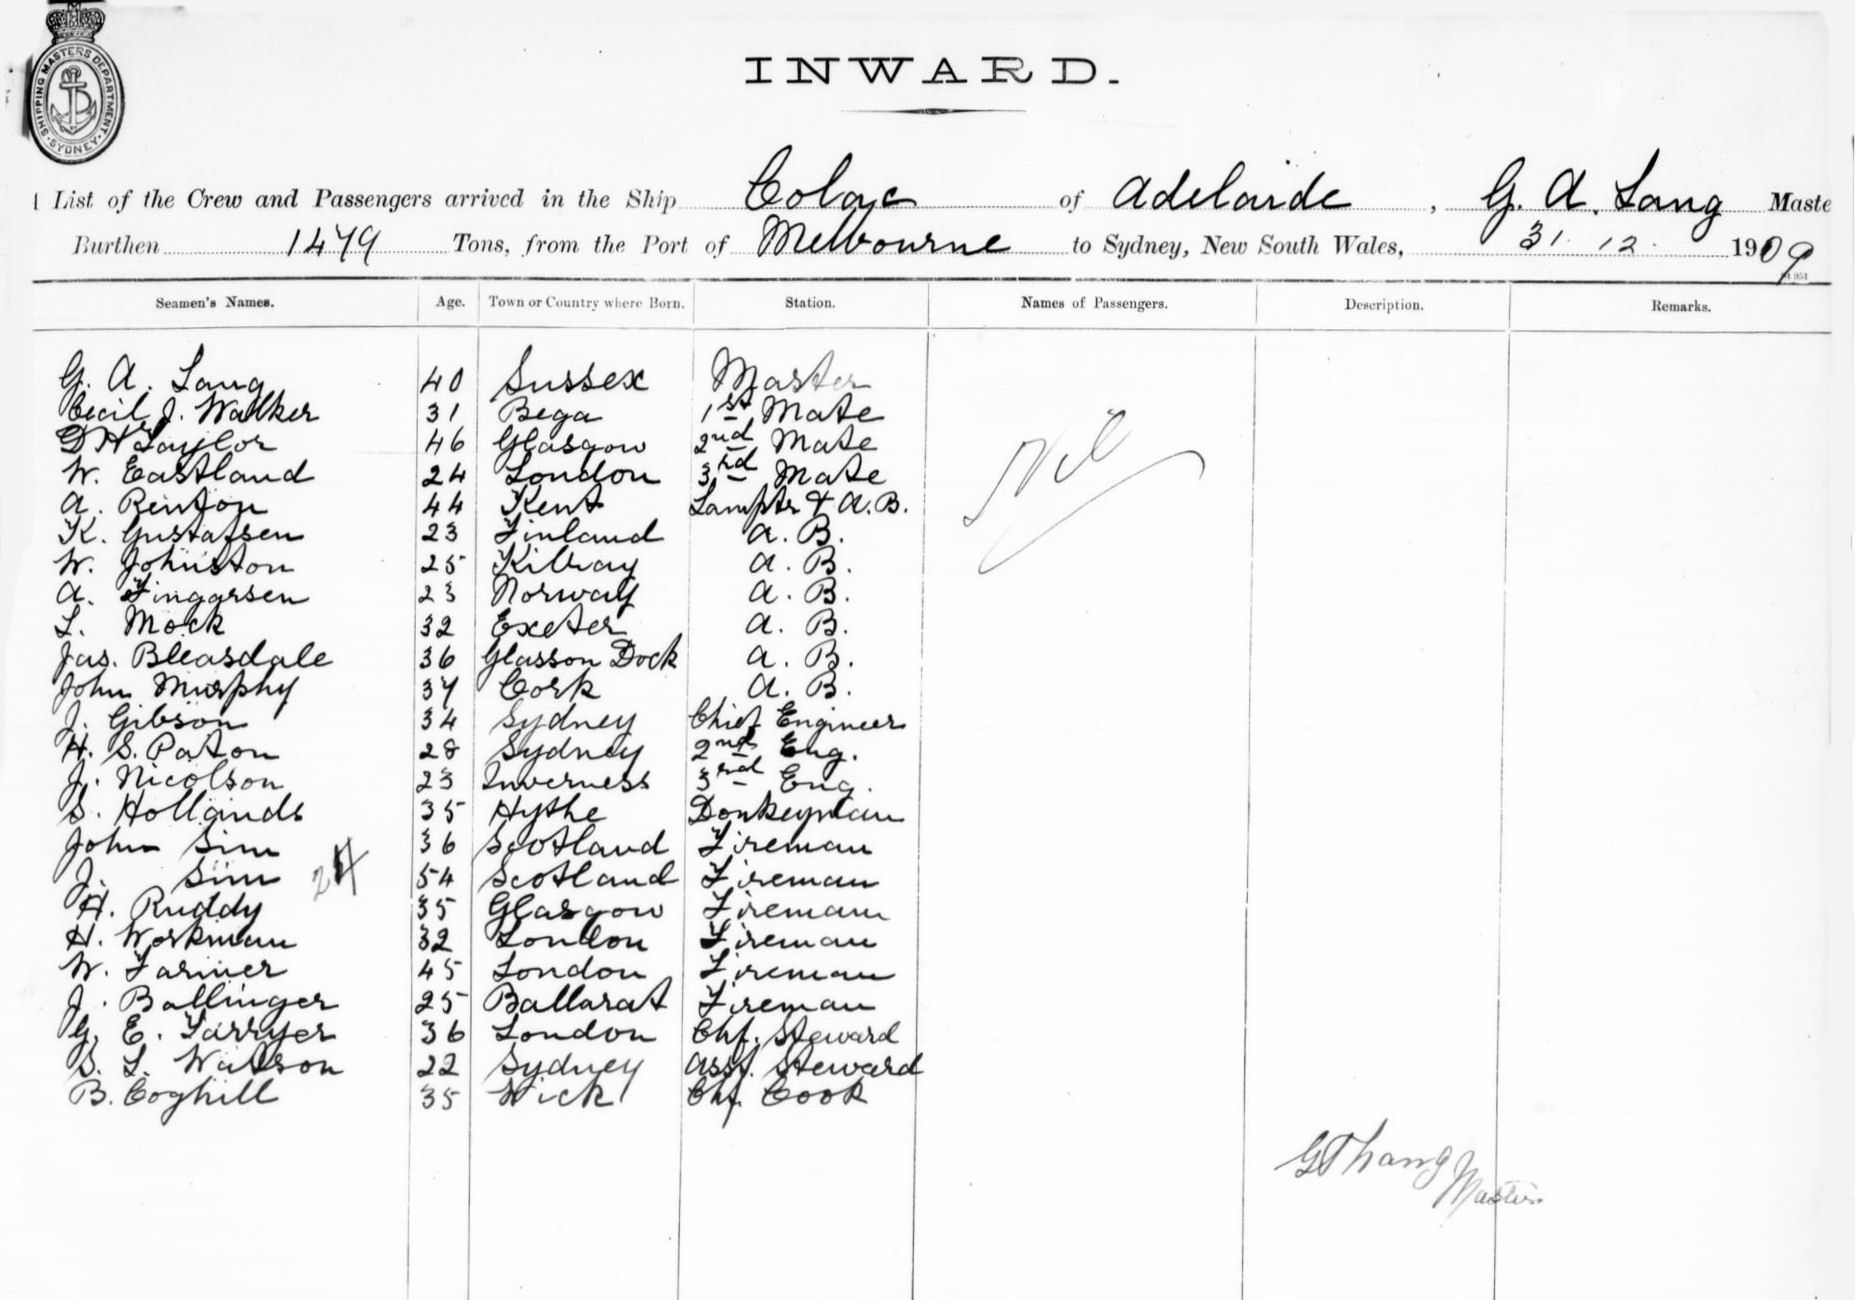 SHIPPING MASTERS DEPARTMENT. SYDNEY
INWARD.
List of the Crew and Passengers arrived in the Ship Colac of Adelaide, G. A. Lang Maste
Burthen 1479 Tons, from the Port of Melbourne to Sydney, New South Wales, 31. 12. 1909
Seamen's Names. Age. Town or Country where Born. Station. Names of Passengers. Description. Remarks.
G. A. Lang 40 Sussex Master
Cecil J. Walker 31 Bega 1st Mate
D H Taylor 46 Glasgow 2nd Mate
W. Eastland 24 London 3rd Mate
A. Renton 44 Kent Lamptr & A.B.
K. Gustafsen 23 Finland A. B.
W. Johnston 25 A. B.
A. Fingarsen 23 Norway A. B.
L. Mock 32 Exeter A. B.
Jas. Bleasdale 36 Glasson Dock A. B.
John Murphy 37 Cork A. B.
J. Gibson 34 Sydney Chief Engineer
H. S. Paton 28 Sydney 2nd Eng.
J. Nicolson 23 Inverness 3rd Eng.
S. Hollands 35 Hythe Donkeyman
John Sim 36 Scotland Fireman
J. Sim 24 54 Scotland Fireman
H. Ruddy 35 Glasgow Fireman
H. Workman 32 London Fireman
W. Farmer 45 London Fireman
J. Ballinger 25 Ballarat Fireman
G. E. Farryer 36 London Chf. Steward
S. L. Watson 22 Sydney Asst. Steward
B. Coghill 35 Wick Chf. Cook
Nil
Master